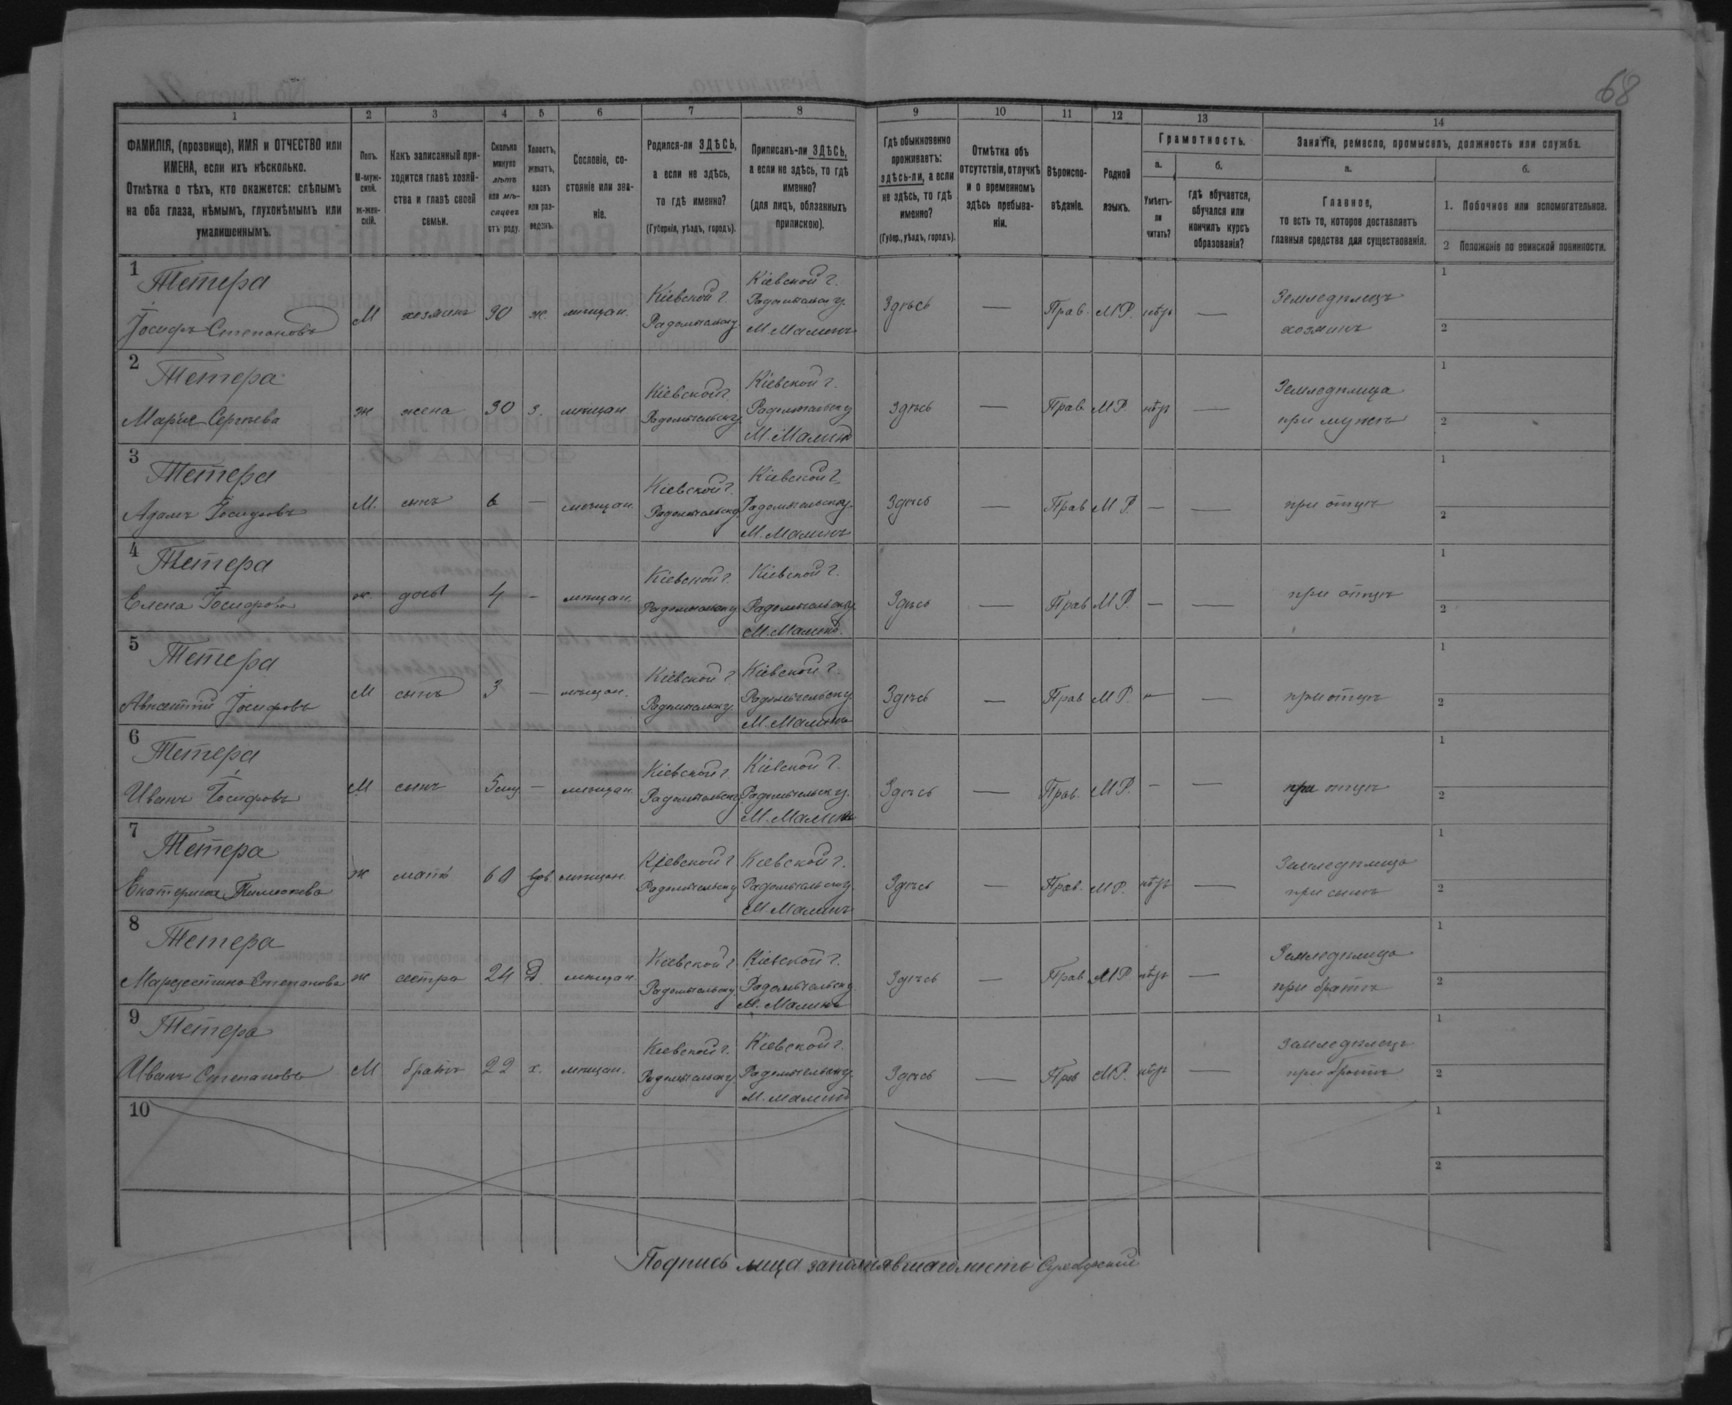 68
1 2 3 4 5 6 7 8 9 10 11 12 13 14
ФАМИЛІЯ, (прозвище), ИМЯ и ОТЧЕСТВО или
ИМЕНА, если ихъ нѣсколько.
Отмѣтка о тѣхъ, кто окажется: слѣпымъ
на оба глаза, нѣмымъ, глухонѣмымъ или
умалишеннымъ.
Полъ.
М-муж-
ской.
ж-жен-
скій.
Какъ записанный при-
ходится главѣ хозяй-
ства и главѣ своей
семьи.
Сколько
минуло
лѣтъ
или мѣ-
сяцевъ
отъ роду.
Холостъ,
женатъ,
вдовъ
или раз-
веденъ.
Сословіе, со-
стояніе или зва-
ніе.
Родился-ли ЗДѢСЬ,
а если не здѣсь,
то гдѣ именно?
(Губернія, уѣздъ, городъ).
Приписанъ-ли ЗДѢСЬ,
а если не здѣсь, то гдѣ
именно?
(для лицъ, обязанныхъ
припискою).
Гдѣ обыкновенно
проживаетъ:
здѣсь-ли, а если
не здѣсь, то гдѣ
именно?
(Губер., уѣздъ, городъ).
Отмѣтка объ
отсутствіи, отлучкѣ
и о временномъ
здѣсь пребыва-
ніи.
Вѣроиспо-
вѣданіе.
Родной
языкъ.
Грамотность.
а.
Умѣетъ-
ли
читать?
б.
гдѣ обучается,
обучался или
кончилъ курсъ
образованія?
Занятіе, ремесло, промыселъ, должность или служба.
а.
Главное,
то есть то, которое доставляетъ
главныя средства для существованія.
б.
1. Побочное или вспомогательное.
2 Положеніе по воинской повинности.
1 Тетера Кіевской г. 1
Іосифъ Степановъ М хозяинъ 30 ж мѣщан. Кіевской г. Радомысльск у. Радомысльск у. М. Малинъ Здѣсь — Прав. М Р. нѣтъ — Земледѣлецъ
хозяинъ 2
2 Тетера Кіевской г. 1
Марія Сергѣева ж жена 30 з. мѣщан. Кіевской г. Радомысльск у. Радомысльск у. М. Малинъ Здѣсь — Прав. М Р. нѣтъ — Земледѣлица
при мужѣ 2
3 Тетера Кіевской г. 1
Адамъ Іосифовъ М. сынъ 6 — мѣщан. Кіевской г. Радомысльск у. Радомысльск у. М. Малинъ Здѣсь — Прав М Р. — — при отцѣ 2
4 Тетера Кіевской г. 1
Елена Іосифова ж дочь 4 — мѣщан. Кіевской г. Радомысльск у. Радомысльск у. М. Малинъ Здѣсь — Прав М Р. — — при отцѣ 2
5 Тетера Кіевской г. 1
Іосифовъ М сынъ 3 — мѣщан. Кіевской г. Радомысльск у. Радомысльск у. М. Малинъ Здѣсь — Прав М Р. — — при отцѣ 2
6 Тетера Кіевской г. 1
Иванъ Іосифовъ М сынъ — мѣщан. Кіевской г. Радомысльск у. Радомысльск у. М. Малинъ Здѣсь — Прав. М Р. — — при отцѣ 2
7 Тетера Кіевской г. 1
Екатерина ж мать вдов мѣщан. Кіевской г. Радомысльск у. Радомысльск у. М. Малинъ Здѣсь — Прав. М Р. нѣтъ — Земледѣлица
при сынѣ 2
8 Тетера Кіевской г. 1
Степанова ж сестра 24 д. мѣщан. Кіевской г. Радомысльск у. Радомысльск у. М. Малинъ Здѣсь — Прав М Р нѣтъ — Земледѣлица
при братѣ 2
9 Тетера Кіевской г. 1
Иванъ Степановъ М братъ 22 х. мѣщан. Кіевской г. Радомысльск у. Радомысльск у. М. Малинъ Здѣсь — Прав М Р. нѣтъ — Земледѣлецъ
при братѣ 2
10 1
2
Подпись лица заполнявшаго листъ